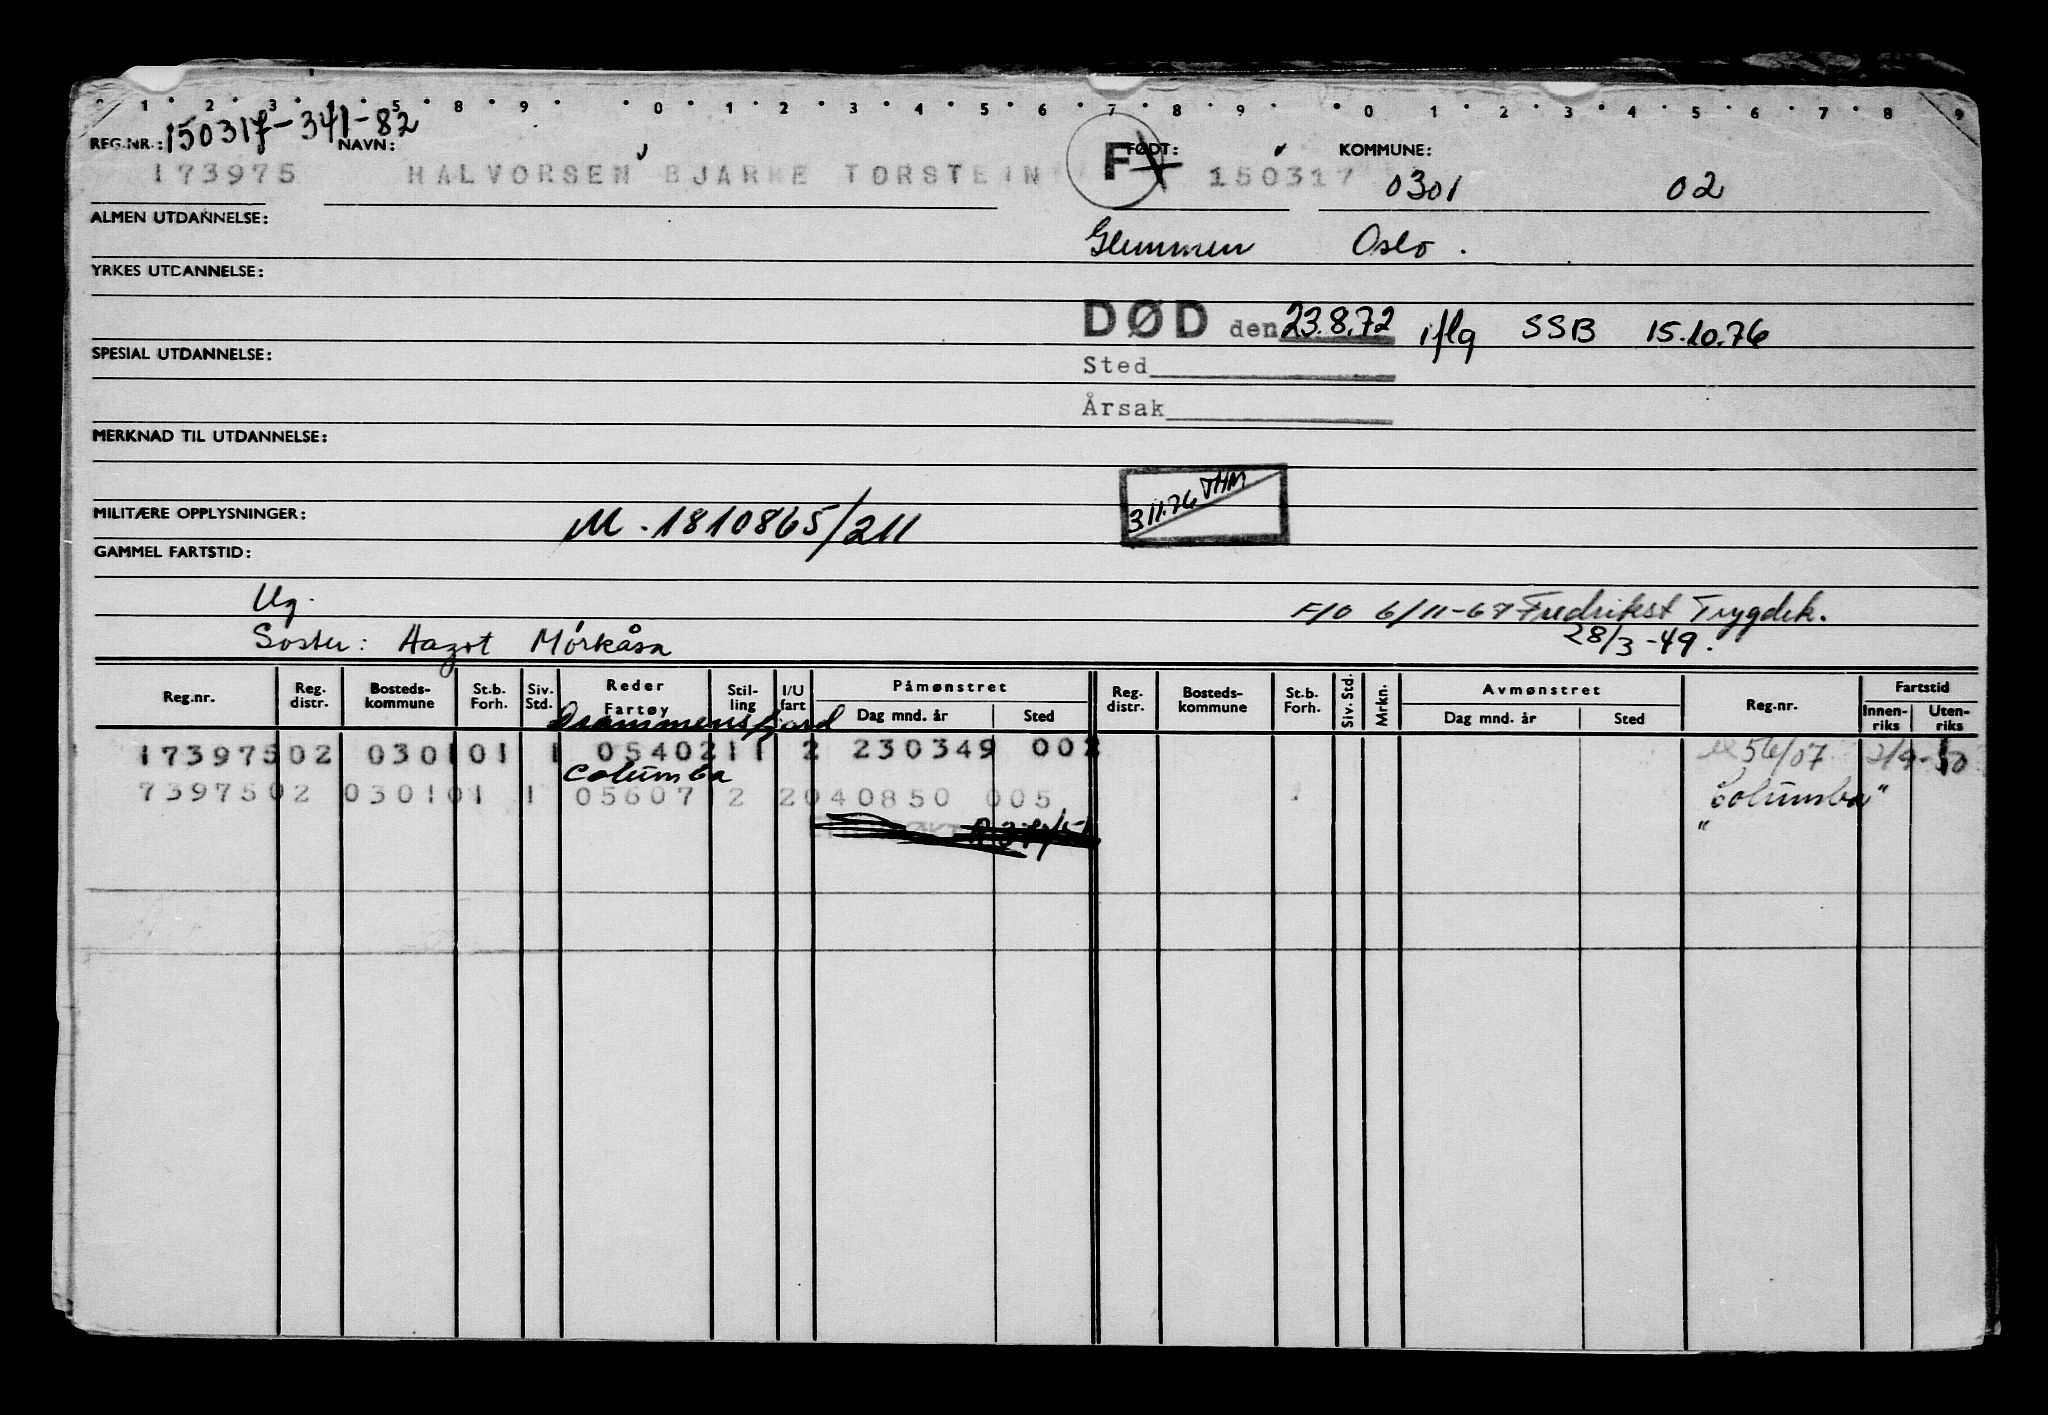 1 2 3 5 8 9 0 1 2 3 4 5 6 7 8 9 0 1 2 3 4 5 6 7 8 9
REG.NR.: 150317-341-82 NAVN: FØDT: KOMMUNE:
173975 HALVORSEN BJARNE TORSTEIN F 150317 0301 02
ALMEN UTDANNELSE:
Glemmen Oslo.
YRKES UTDANNELSE:
DØD den 23.8.72 iflg SSB 15.10.76
SPESIAL UTDANNELSE:
Sted
Årsak
MERKNAD TIL UTDANNELSE:
3.11.76 THM
MILITÆRE OPPLYSNINGER: M.1810865/211
GAMMEL FARTSTID:
Ug. F/O 6/11-67 Fredrikst Trygdek.
Søster: Aagot Mörkåsa 28/3-49.
Reg.nr. Reg. distr. Bosteds-kommune St.b. Forh. Siv. Std. Reder Fartøy Stil-ling I/U fart Påmønstret Dag mnd. år Sted Reg. distr. Bosteds-kommune St.b. Forh. Siv. Std. Mrkn. Avmønstret Dag mnd. år Sted Reg.nr. Fartstid Innen-riks Uten-riks
Drammensfjord
173975 02 0301 01 1 05402 11 2 230349 002 56/07 2/9-50
Columba
73975 02 0301 01 1 05607 12 2 040850 005 "Columba"